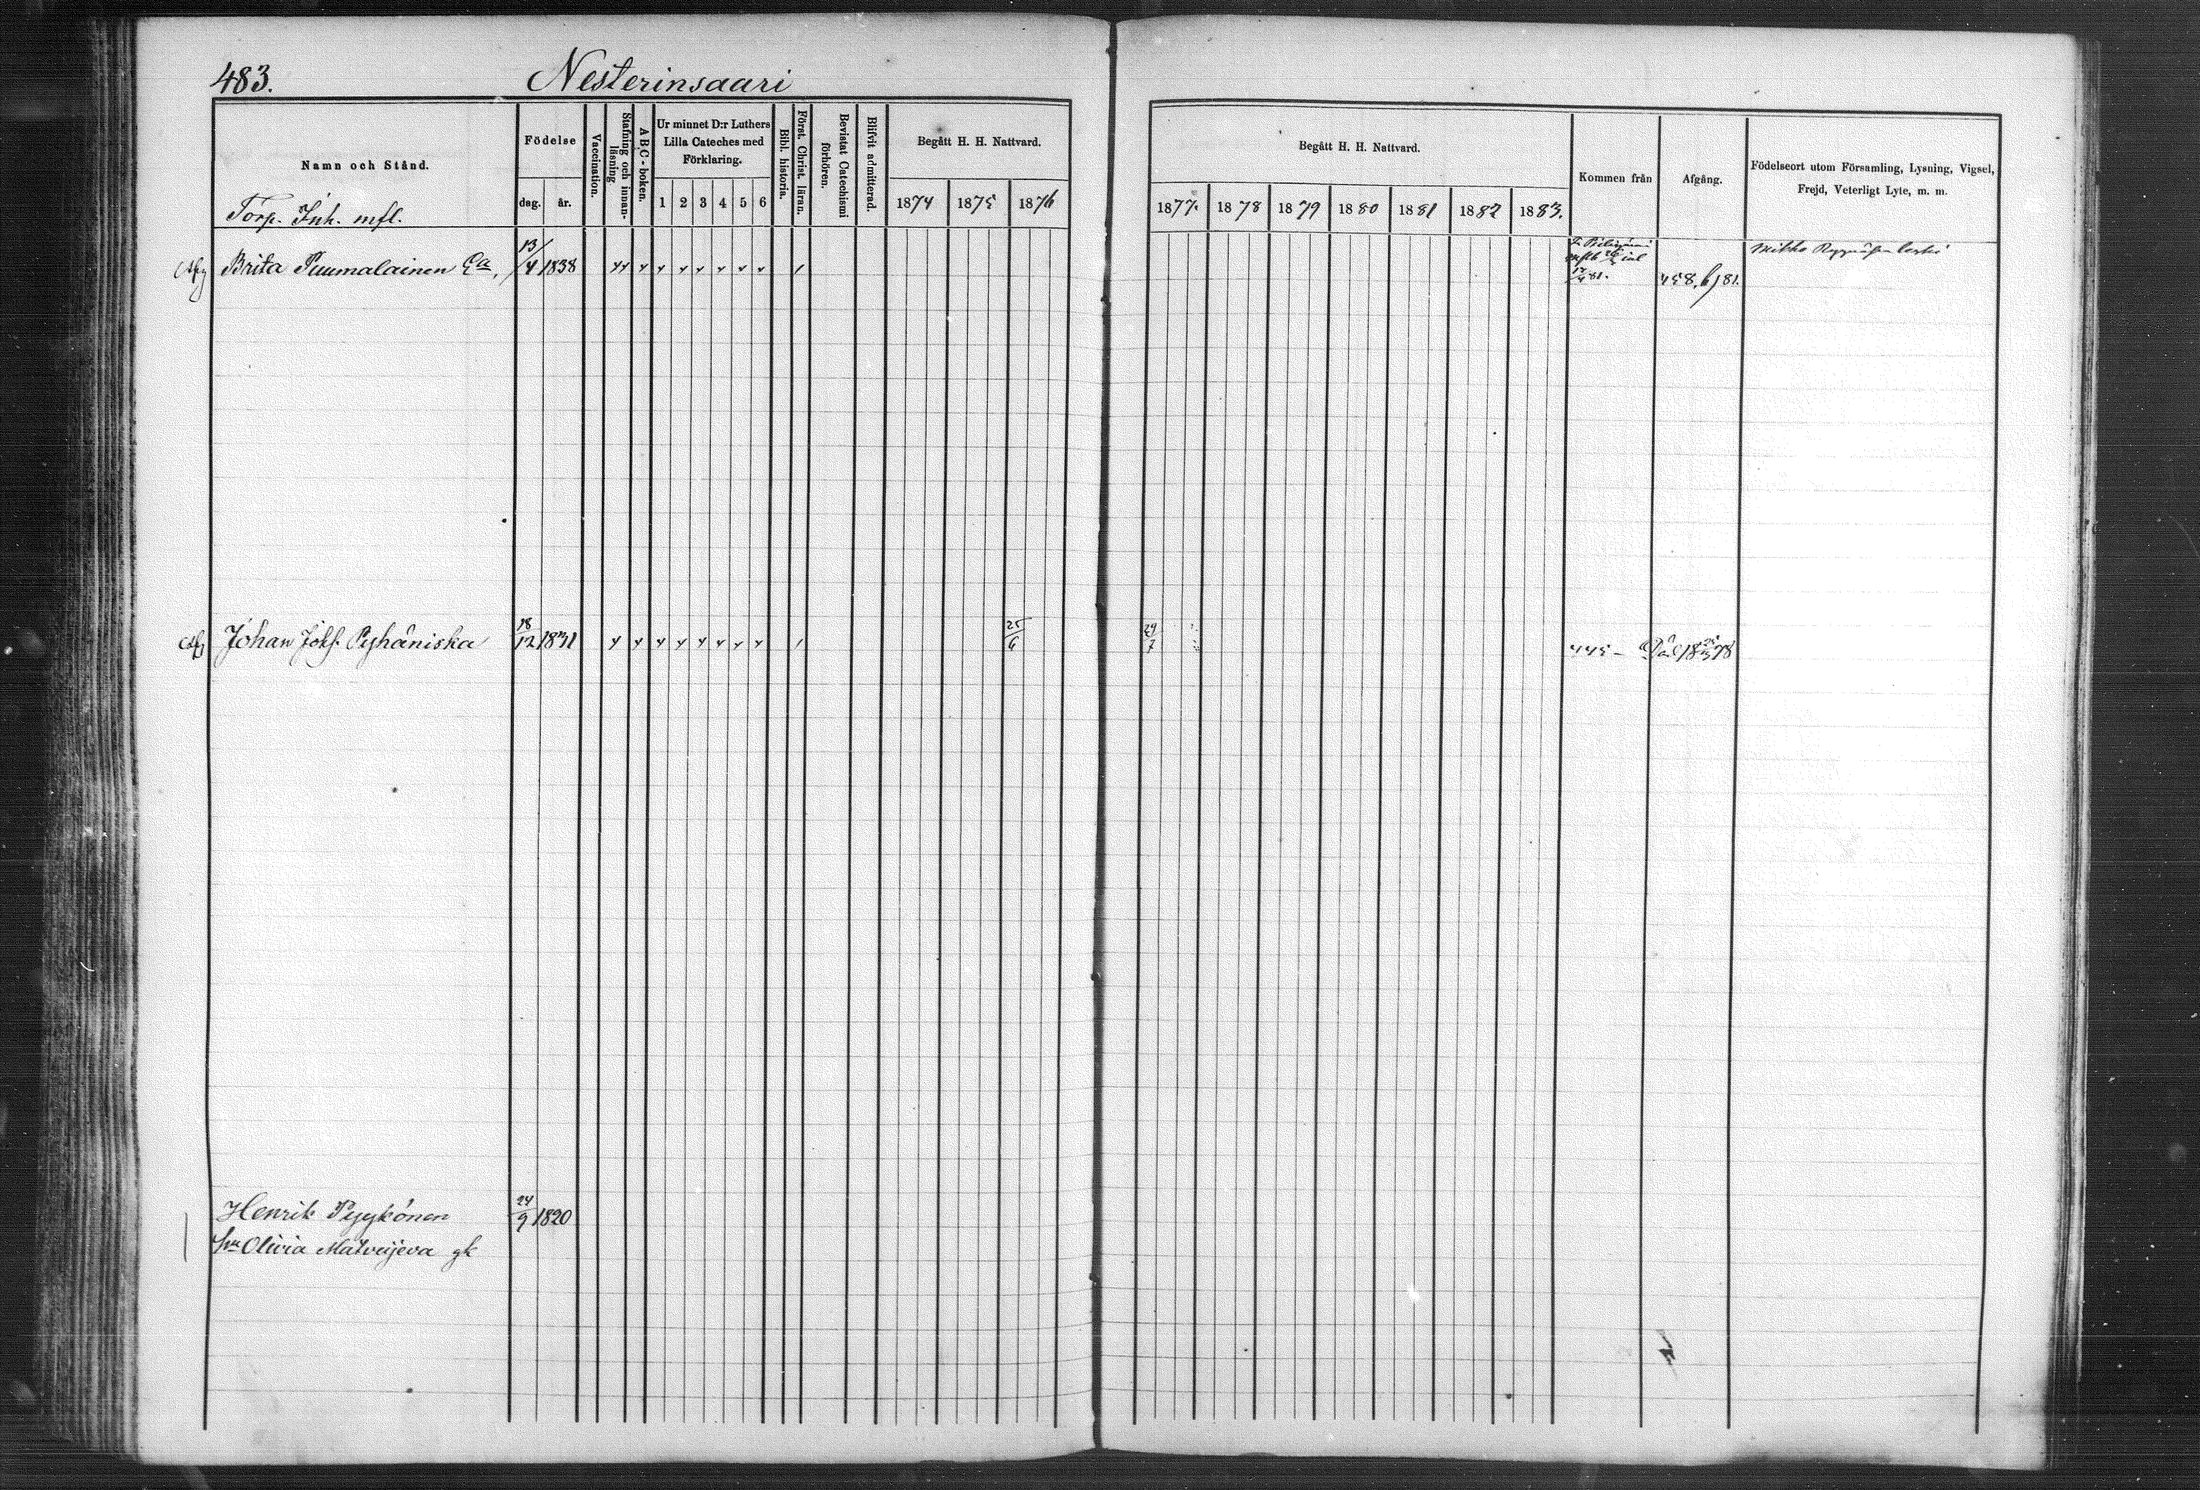 483. Nesterinsaari
Namn och Stånd.
Torp. Inh. mfl.
Födelse
dag. år.
Vaccination.
Stafning och innanläsning
ABC-boken.
Ur minnet D:r Luthers
Lilla Cateches med
Förklaring.
1 2 3 4 5 6
Bibl. historia.
Först. Christ. läran.
Bevistat Catechismi förhören.
Blifvit admitterad.
Begått H. H. Nattvard.
1874 1875 1876
Begått H. H. Nattvard.
1877. 1878 1879 1880 1881 1882 1883.
Kommen från
Afgång.
Födelseort utom Församling, Lysning, Vigsel,
Frejd, Veterligt Lyte, m. m.
Brita Puumalainen 13/4 1838 458, 6/81. Mikko
Johan Pyhäniska 18/12 1831 25/6 29/7 445 –
Henrik Pyykönen 24/9 1820
Olivia Matvejeva gk